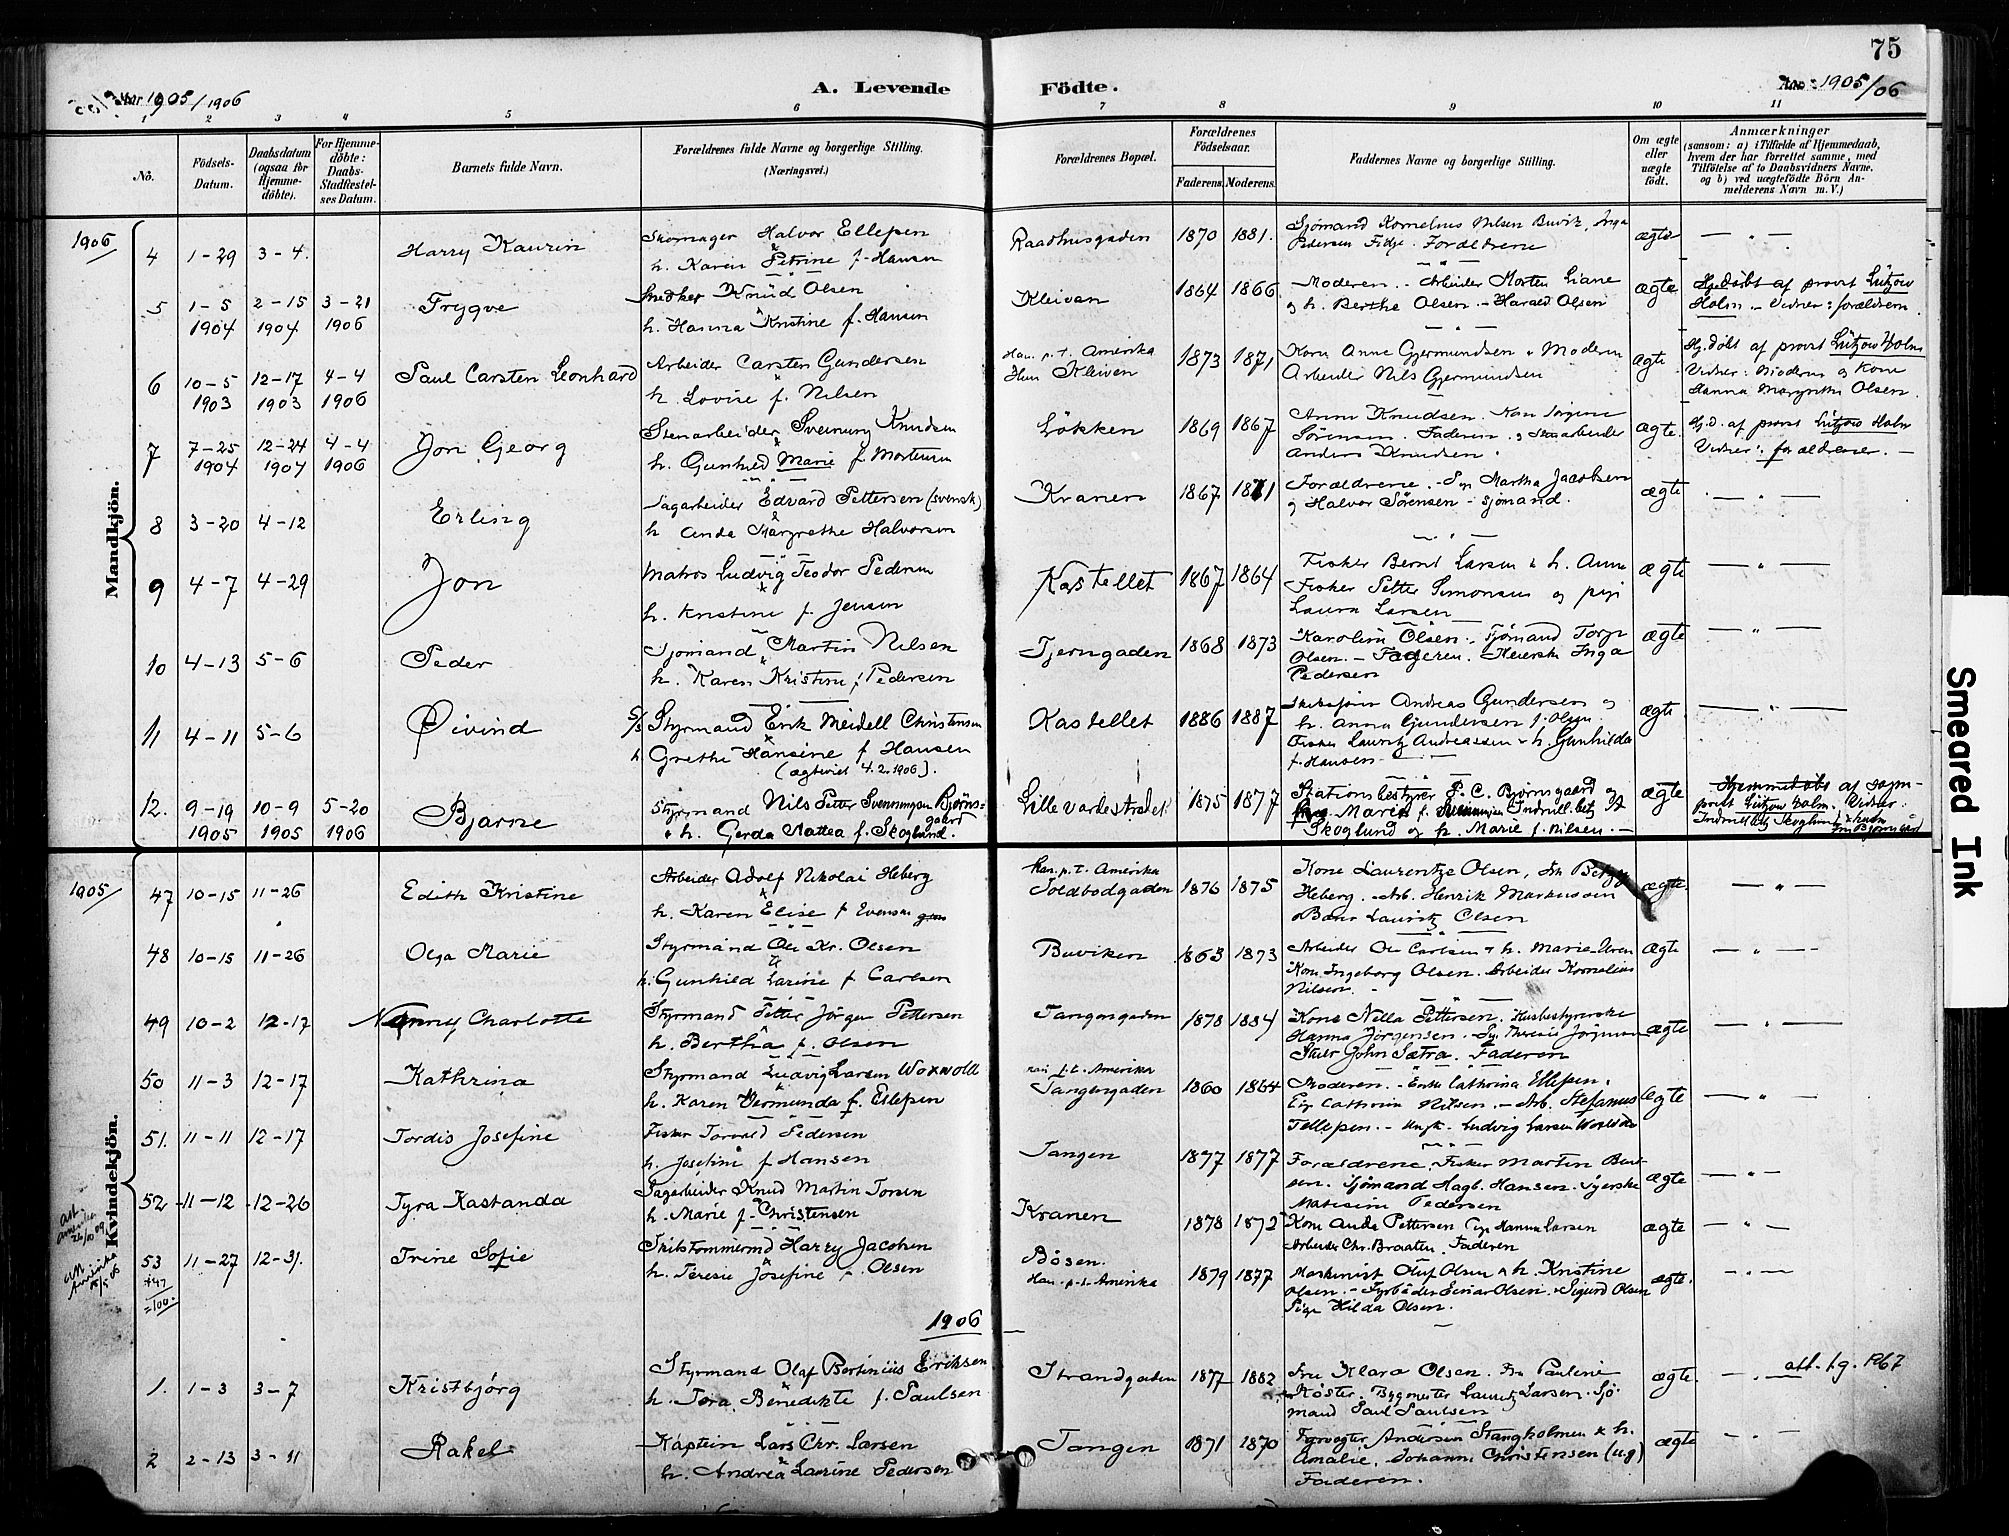 75
Aar 1905/1906
A. Levende
Födte.
Aar 1905/06
1 2 3 4 5 6 7 8 9 10 11
No.
Födsels-Datum.
Daabsdatum (ogsaa for Hjemme-döbte).
For Hjemme-döbte: Daabs-Stadfæstel-ses Datum.
Barnets fulde Navn.
Forældrenes fulde Navne og borgerlige Stilling.
(Næringsvei.)
Forældrenes Bopæl.
Forældrenes Födselsaar.
Faderens. Moderens.
Faddernes Navne og borgerlige Stilling.
Om ægte eller uægte födt.
Anmærkninger
(saasom: a) i Tilfælde af Hjemmedaab, hvem der har forrettet samme, med Tilföielse af to Daabsvidners Navne, og b) ved uægtefödte Börn An-melderens Navn m. V.)
Mandkjön.
1906
4 1-29 3-4 Harry Kaurin Skomager Halvor Ellefsen Raadhusgaden 1870 1881 Sjömand Kornelius Nilsen Buvik, Inga ægte — " —
h. Karen Petrine f. Hansen Pedersen Fidje. Forældrene
5 1-5 2-15 3-21 Trygve Snedker Knud Olsen Kleivan 1864 1866 Moderen. - Arbeider Morten Liane ægte Hjdøbt af provst Lützow
1904 1904 1906 h. Hanna Kristine f. Hansen og h. Berthe Olsen - Harald Olsen Holm - Vidner: forældrene
6 10-5 12-17 4-4 Paul Carsten Leonhard Arbeider Carsten Gundersen Han p.t. Amerika 1873 1871 Kone Anne Gjermundsen. Moderen ægte Hj.døbt af provst Lützow Holm
1903 1903 1906 h. Lovise f. Nilsen Hun Kleiven Arbeider Nils Gjermundsen Vidner: Moderen og Kone
Hanna Margrethe Olsen.
7 7-25 12-24 4-4 Jon Georg Stenarbeider Sveinung Knudsen Løkken 1869 1867 Anne Knudsen. Kone Jørgine ægte. Hj.d. af provst Lützow Holm
1904 1904 1906 h. Gunhild Marie f. Mortensen Sørensen. Faderen. og Stenarbeider Vidner: forældrene. —
Anders Knudsen.
8 3-20 4-12 Erling Sagarbeider Edvard Pettersen (svensk) Kranen 1867 1871 Forældrene. - Pige Martha Jacobsen ægte — " —
h. Anda Margrethe Halvorsen og Halvor Sørensen - sjømand.
9 4-7 4-29 Jon Matros Ludvig Teodor Pedersen Kastellet 1867 1864 Fisker Bernt Larsen & h. Anne ægte — " —
h. Kristine f. Jensen Fisker Petter Simonsen og pige
Laura Larsen
10 4-13 5-6 Peder Sjømand Martin Nilsen Tjerngaden 1868 1873 Karoline Olsen. Sjømand Torje ægte — " —
h. Karen Kristine f. Pedersen Olsen. - Faderen. Meierske Inga
Pedersen
11 4-11 5-6 Øivind Styrmand Erik Meidell Christensen Kastellet 1886 1887 Andreas Gundersen og ægte — " —
h. Grethe Hansine f. Hansen h. Anna Gundersen f. Olsen
(ægteviet 4.2.1906). Fisker Lauritz Andreassen & h. Gunhilda
f. Hansen -
12. 9-19 10-9 5-20 Bjarne Styrmand Nils Petter Svenningsen Bjørns-gaard Lille vardestrædet 1875 1877 Stationsbestyrer P. C. Bjørnsgaard og ægte Hjemmedøbt af sogn-
1905 1905 1906 & h. Gerda Mattea f. Skoglund. Marie f. provst Lützow Holm. Vidner:
Skoglund og h. Marie f. Nilsen. —
Kvindekjön.
1905
47 10-15 11-26 Edith Kristine Arbeider Adolf Nikolai Heberg han p.t. Amerika Toldbodgaden 1876 1875 Kone Laurentze Olsen, Betzy ægte. — " —
h. Karen Elise f. Evensen Heberg. Arb. Henrik Markussen
Lauritz Olsen
48 10-15 11-26 Olga Marie Styrmand Ole Kr. Olsen Buviken 1863 1873 Arbeider Ole Carlsen & h. Marie ægte — " —
h. Gunhild Larine f. Carlsen Kone Ingeborg Olsen. Arbeider Kornelius
Nilsen. -
49 10-2 12-17 Nanny Charlotte Styrmand Petter Jörgen Pettersen Tangengaden 1878 1884 Kone Nella Pettersen. Husbestyrerske ægte — " —
h. Bertha f. Olsen Hanna Jørgensen. Therese Jørgensen
John Sætra. Faderen
50 11-3 12-17 Kathrina Styrmand Ludvig Larsen Woxvold han p.t. Amerika Tangengaden 1860 1864 Moderen. - Enke Cathrina Ellefsen. ægte — " —
h. Karen Vermunda f. Ellefsen Pige Cathrine Nilsen. - Arb. Stefanus
Tellefsen. - Ungk. Ludvig Larsen
51. 11-11 12-17 Tordis Josefine Fisker Torvald Pedersen Tangen 1877 1877 Forældrene. Fisker Martin Bent- ægte — " —
h. Josefine f. Hansen sen. Sjømand Hagb. Hansen. Syerske
Pedersen
52 11-12 12-26 Tyra Kastanda Sagarbeider Knud Martin Torsen Kranen 1878 1872 Kone Anda Pettersen Pige Hanna Larsen ægte — " —
h. Marie f. Christensen Arbeider Chr. Braaten. Faderen
53 11-27 12-31. Trine Sofie Skibstømmermd Harry Jacobsen Bôsen. 1879 1877 Maskinist Oluf Olsen & h. Kristine ægte. — " —
+47 h. Terese Josefine f. Olsen Han p.t. Amerika Olsen. - Fyrbøder Einar Olsen. Sigurd Olsen
=100: Pige Hilda Olsen.
1906
1. 1-3 3-7 Kristbjørg Styrmand Olaf Bertinius Eriksen Strandgaden 1877 1882 Fru Klara Olsen. Fru Pauline ægte. — " — att. t.g. 1967
h. Tora Benedikte f. Paulsen Köster. Bygmester Lauritz Larsen. Sjø-
mand Paul Paulsen
2 2-13 3-11 Rakel Kaptein Lars Chr. Larsen Tangen 1871 1870 Fyrvogter Andersen Stangholmen & h. ægte — " —
h. Andrea Laurine Pedersen Amalie. Johanne Christensen (ug)
Faderen.
Smeared Ink